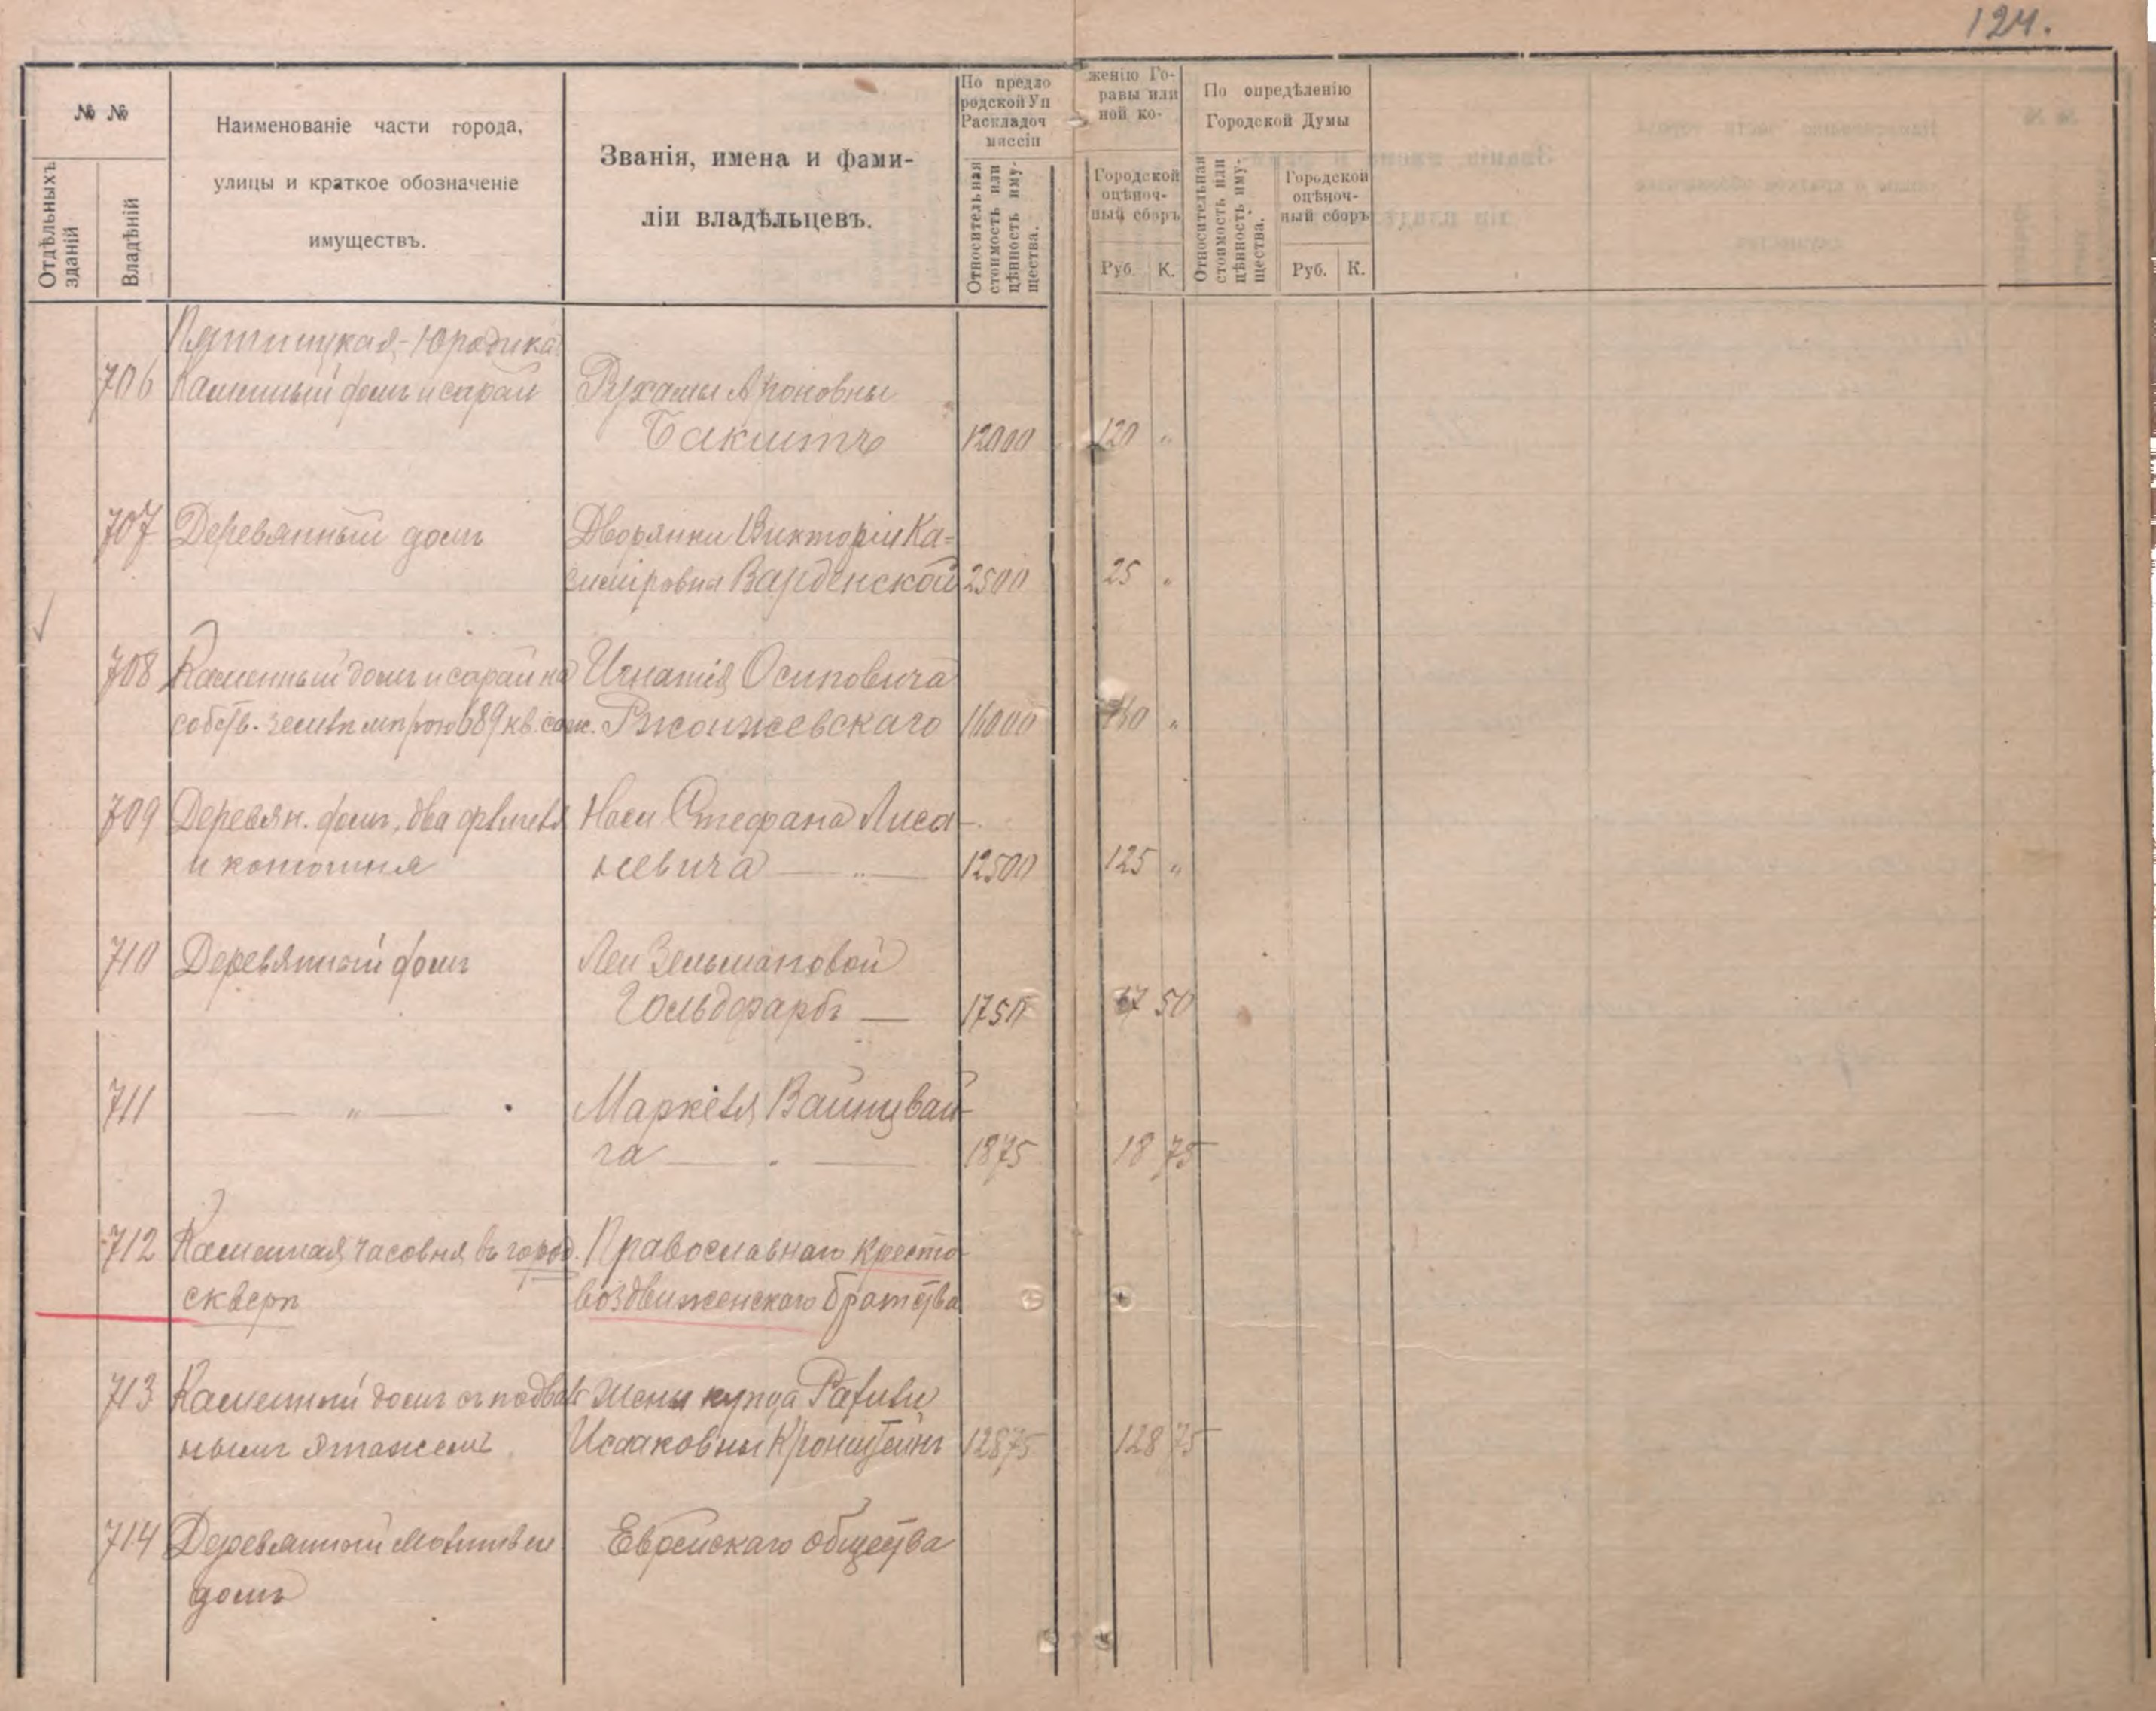 124.
№ №
Отдѣльныхъ зданій
Владѣній
Наименованіе части города,
улицы и краткое обозначеніе
имуществъ.
Званія, имена и фами-
ліи владѣльцевъ.
По предло женію Го-
родской Уп равы или
Расклодоч ной ко-
миссіи
Относительная
стоимость или
цѣнность иму-
щества.
Городской
оцѣноч-
ный сборъ
Руб. К.
По опредѣленію
Городской Думы
Относительная
стоимость или
цѣнность иму-
щества.
Городской
оцѣноч-
ный сборъ
Руб. К.
Пятницкая-Юродика
706 Каменный домъ и сарай Рухамы Ароновны
Бакштъ 12000 120 "
707 Деревянный домъ Дворянки Викторіи Ка=
симіровна Варденской 2500 25 "
708 Каменный домъ и сарай на Игнатія Осиповича
собств. землѣ мѣрою 689 кв. саж. Ржонжевскаго 16000 "
709 Деревян. домъ, два флигеля Насл. Стефана Лиса-
и конюшня севича — " — 12500 125 "
710 Деревянный домъ Леи Зельмановой
Гольдфарбъ — 1750 17 50
711 — " — Маркеля Вайнцвай-
га — " — 1875 18 75
712 Каменная часовня въ город. Православнаго Кресто-
скверѣ воздвиженскаго братства
713 Каменный домъ съ подваль Жены купца Рахили
нымъ этажемъ Исааковны Кронштейнъ 12875 128 75
714 Деревянный молитвен. Еврейскаго общества
домъ